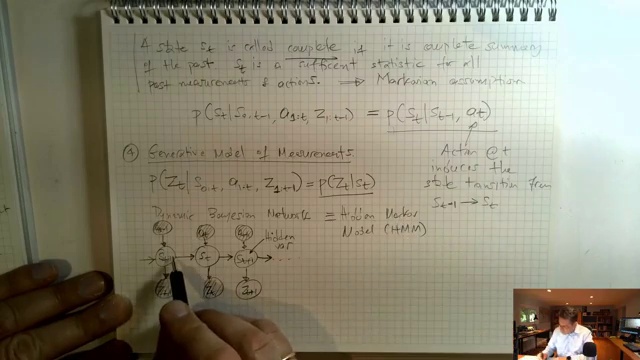 A state St is called complete if it is complete summary
of the past St is a sufficient statistic for all
past measurements & actions. ⟹ Markovian assumption
p(St|S0:t-1, a1:t, Z1:t-1) = p(St|St-1, at)
④ Generative Model of Measurements.
Action @t
induces the
state transition from
St-1 → St
p(Zt|S0:t, a1:t, Z1:t-1) = p(Zt|St)
Dynamic Bayesian Network ≡ Hidden Markov
Model (HMM)
at-1 at at+1
Hidden
var
St-1 St St+1 ...
Zt-1 Zt Zt+1